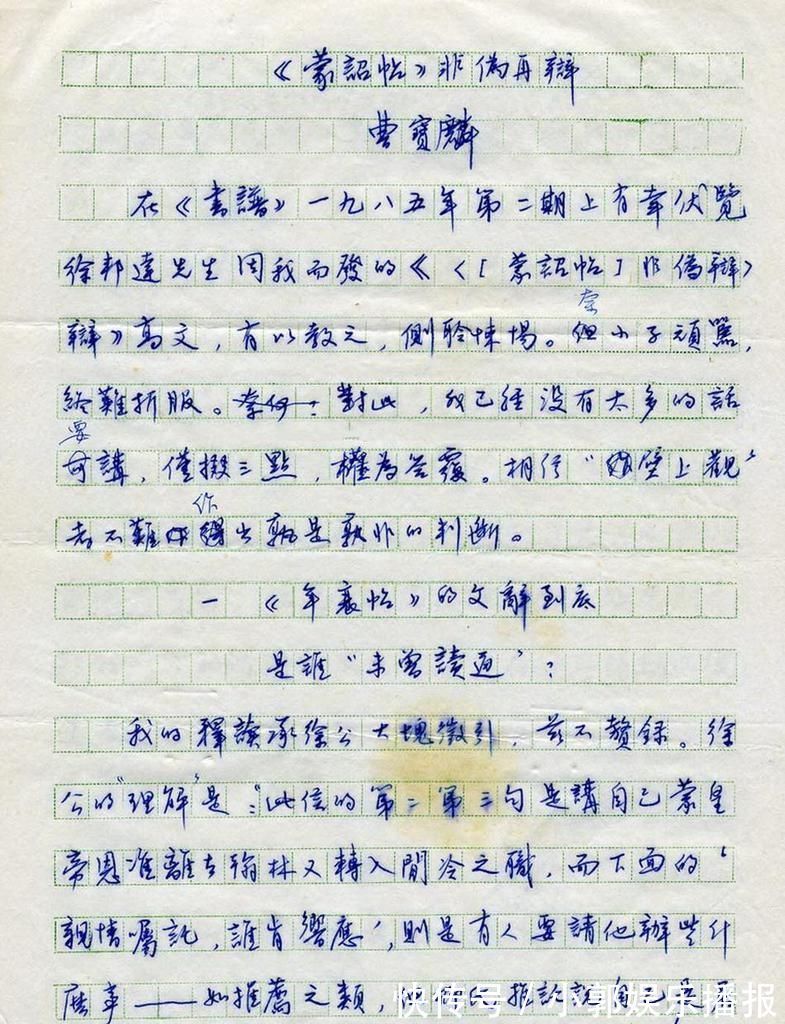 《蒙詔帖》非偽再辯
曹寶麟
在《書譜》一九八五年第二期上有幸伏覽
徐邦達先生因我而發的《〈[蒙詔帖]非偽辯〉
辯》高文，有以教之，側聆悚惕。奈小子頑囂，
終難折服。對此，我已經没有太多的話
要講，僅掇三點，權為答覆。相信“壁上觀”
者不難作出孰是孰非的判斷。
一 《年衰帖》的文辭到底
是誰“未曾讀通”？
我的釋讀承徐公大塊徵引，兹不贅録。徐
公的“理解”是：“此信的第二第三句是講自己蒙皇
帝恩准離去翰林又轉入閒冷之職，而下面的‘
親情囑託，誰肯響應’，則是有人要請他辦些什
麽事——如推薦之類，
快传号/小郭娱乐播报